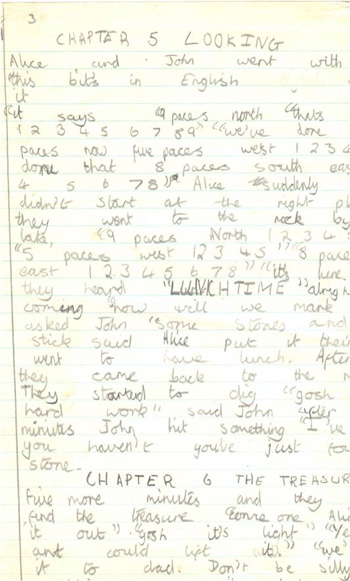 3
CHAPTER 5 LOOKING
Alice and John went with
"this bits in English
it
"it says "9 paces north "thats
1 2 3 4 5 6 7 8 9" "we've done
paces now five paces west 1 2 3 4
done that 8 paces south eas
4 5 6 7 8" Alice suddenly
didn't start at the right pl
they went to the rock by
lake, "9 paces North 1 2 3 4 5
"5 paces west 1 2 3 4 5" "8 pace
east 1 2 3 4 5 6 7 8" "it's here.
they heard "LUNCHTIME"
coming "how will we mark
asked John "some stones and
stick said Alice put it their
went to have lunch. After
they came back to the
They started to dig "gosh
hard work" said John after
minutes John hit something "I've
you haven't you've just fou
stone.
CHAPTER 6 THE TREASUR
Five more minutes and they
find the treasure come one Ali
it out" "gosh it's light" "Ye
and could lift it" "we'
it to dad. Don't be silly